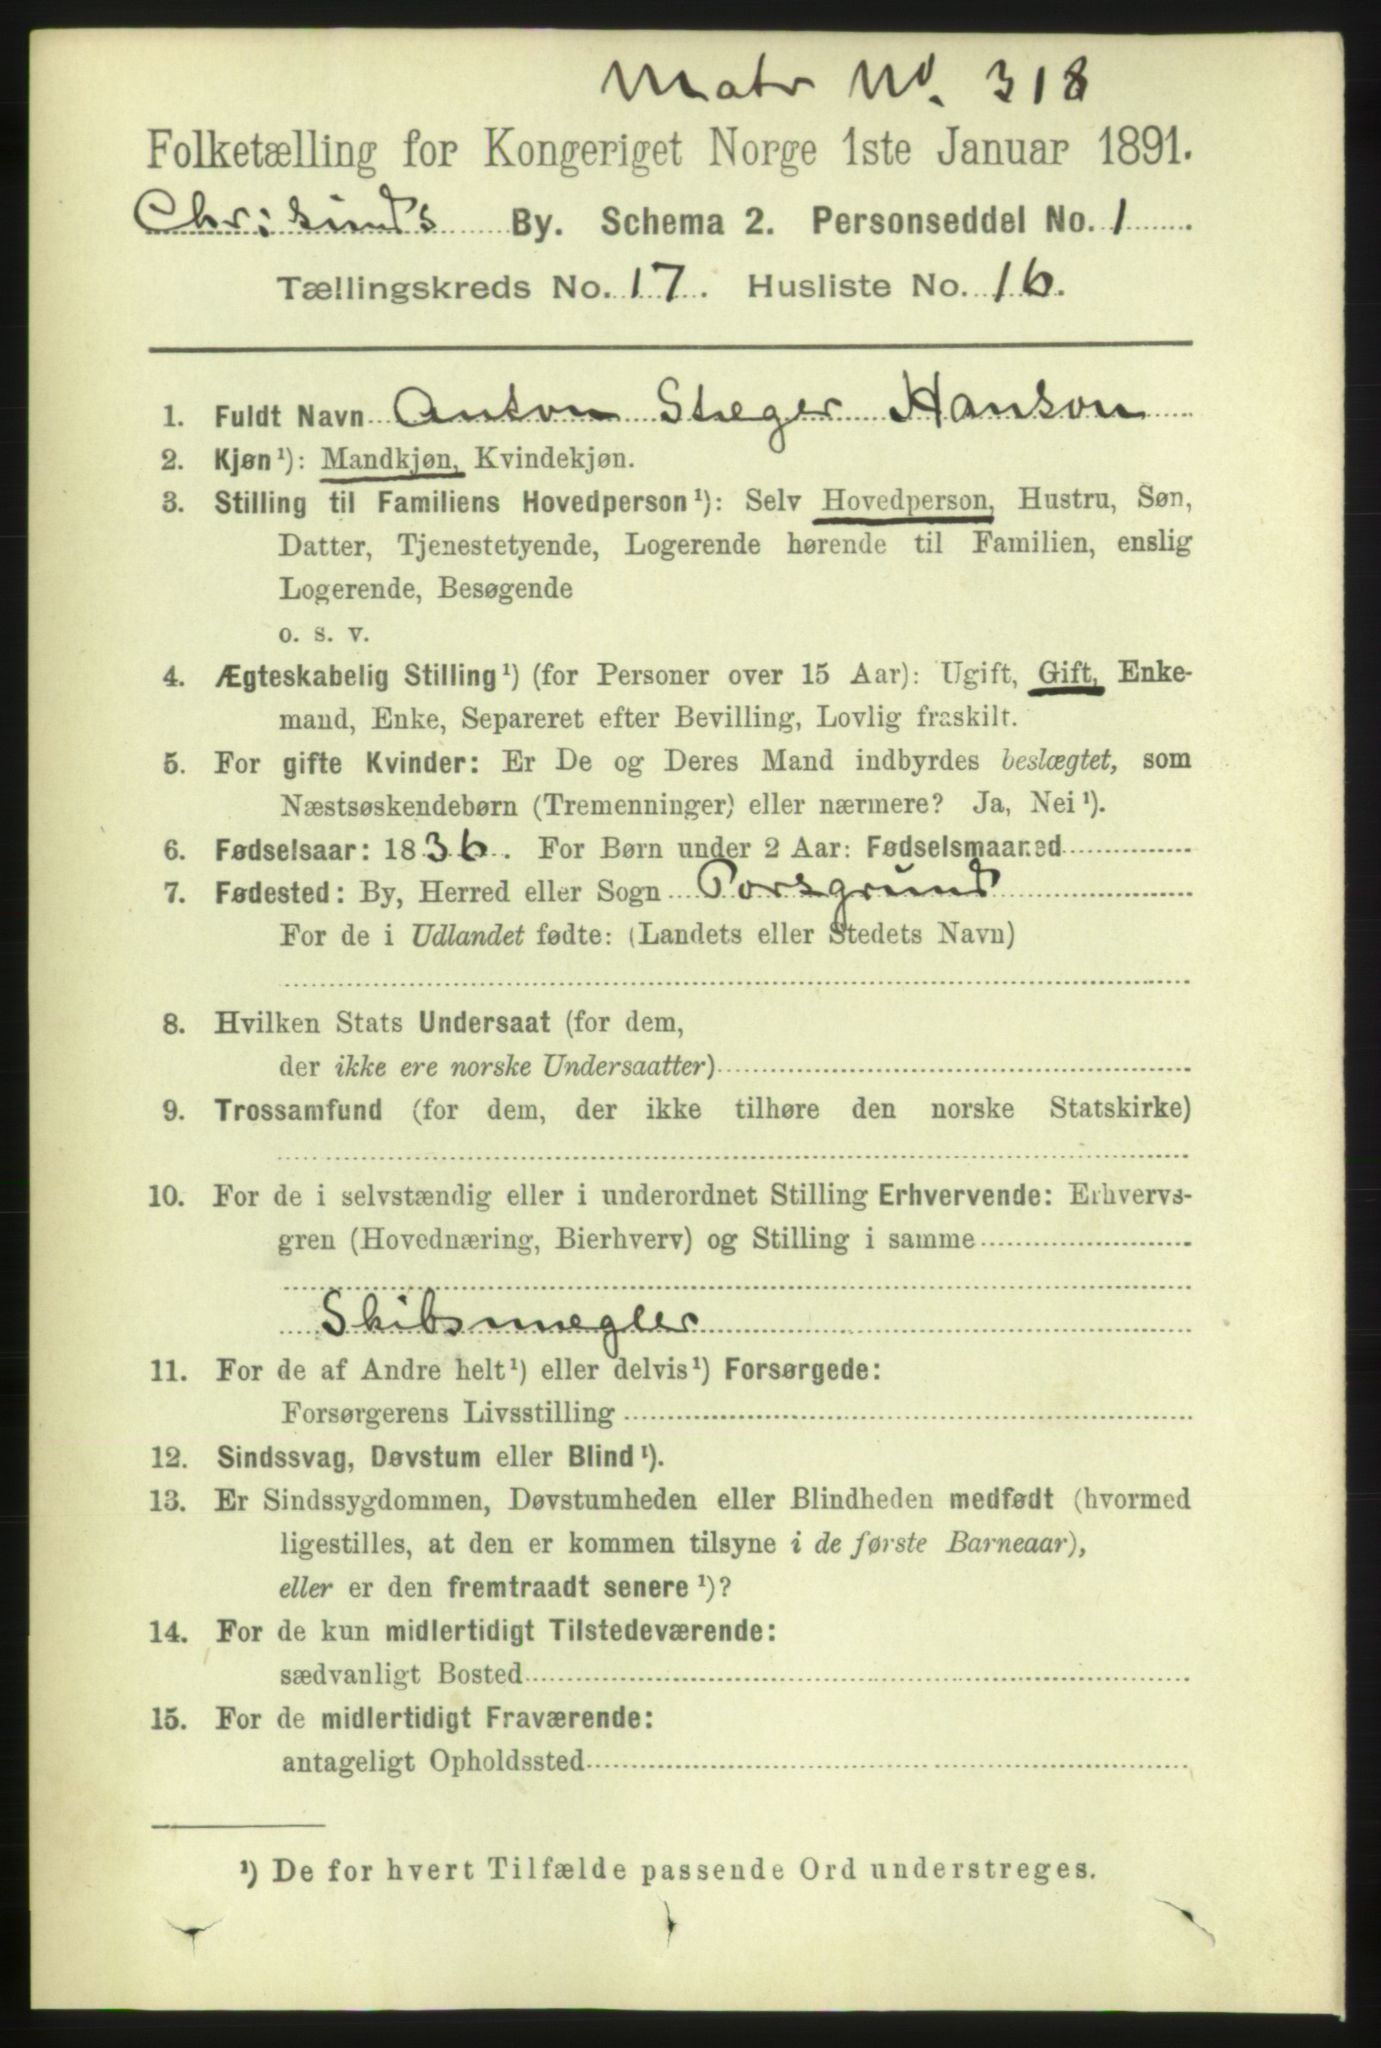 Matr No. 318
Folketælling for Kongeriget Norge 1ste Januar 1891.
Chr: sunds By. Schema 2. Personseddel No. 1
Tællingskreds No. 17. Husliste No. 16.
1. Fuldt Navn Anton Stæger Hanson
2. Kjøn¹): Mandkjøn, Kvindekjøn.
3. Stilling til Familiens Hovedperson¹): Selv Hovedperson, Hustru, Søn,
Datter, Tjenestetyende, Logerende hørende til Familien, enslig
Logerende, Besøgende
o. s. v.
4. Ægteskabelig Stilling¹) (for Personer over 15 Aar): Ugift, Gift, Enke-
mand, Enke, Separeret efter Bevilling, Lovlig fraskilt.
5. For gifte Kvinder: Er De og Deres Mand indbyrdes beslægtet, som
Næstsøskendebørn (Tremenninger) eller nærmere? Ja, Nei¹).
6. Fødselsaar: 1836. For Børn under 2 Aar: Fødselsmaaned
7. Fødested: By, Herred eller Sogn Porsgrund
For de i Udlandet fødte: (Landets eller Stedets Navn)
8. Hvilken Stats Undersaat (for dem,
der ikke ere norske Undersaatter)
9. Trossamfund (for dem, der ikke tilhøre den norske Statskirke)
10. For de i selvstændig eller i underordnet Stilling Erhvervende: Erhvervs-
gren (Hovednæring, Bierhverv) og Stilling i samme
Skibsmægler
11. For de af Andre helt¹) eller delvis¹) Forsørgede:
Forsørgerens Livsstilling
12. Sindssvag, Døvstum eller Blind¹).
13. Er Sindssygdommen, Døvstumheden eller Blindheden medfødt (hvormed
ligestilles, at den er kommen tilsyne i de første Barneaar),
eller er den fremtraadt senere¹)?
14. For de kun midlertidigt Tilstedeværende:
sædvanligt Bosted
15. For de midlertidigt Fraværende:
antageligt Opholdssted
¹) De for hvert Tilfælde passende Ord understreges.